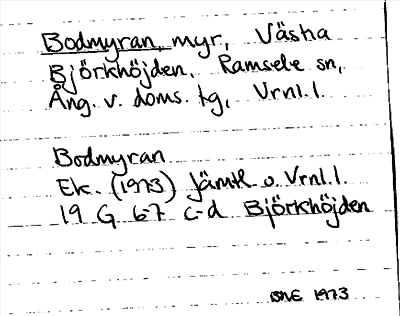 Bodmyran, myr, Västra
Björkhöjden, Ramsele sn,
Ång. v. doms. tg, Vrnl. l.
Bodmyran
Ek. (1973) Jämtl o. Vrnl. l.
19 G 67 c-d Björkhöjden
BNE 1973